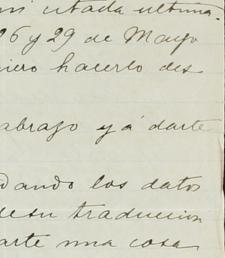 mi citada ultima.
26 y 29 de Mayo
hacerlo des
abrazo y á darte
dando los datos
de su traduccion
arte una cosa